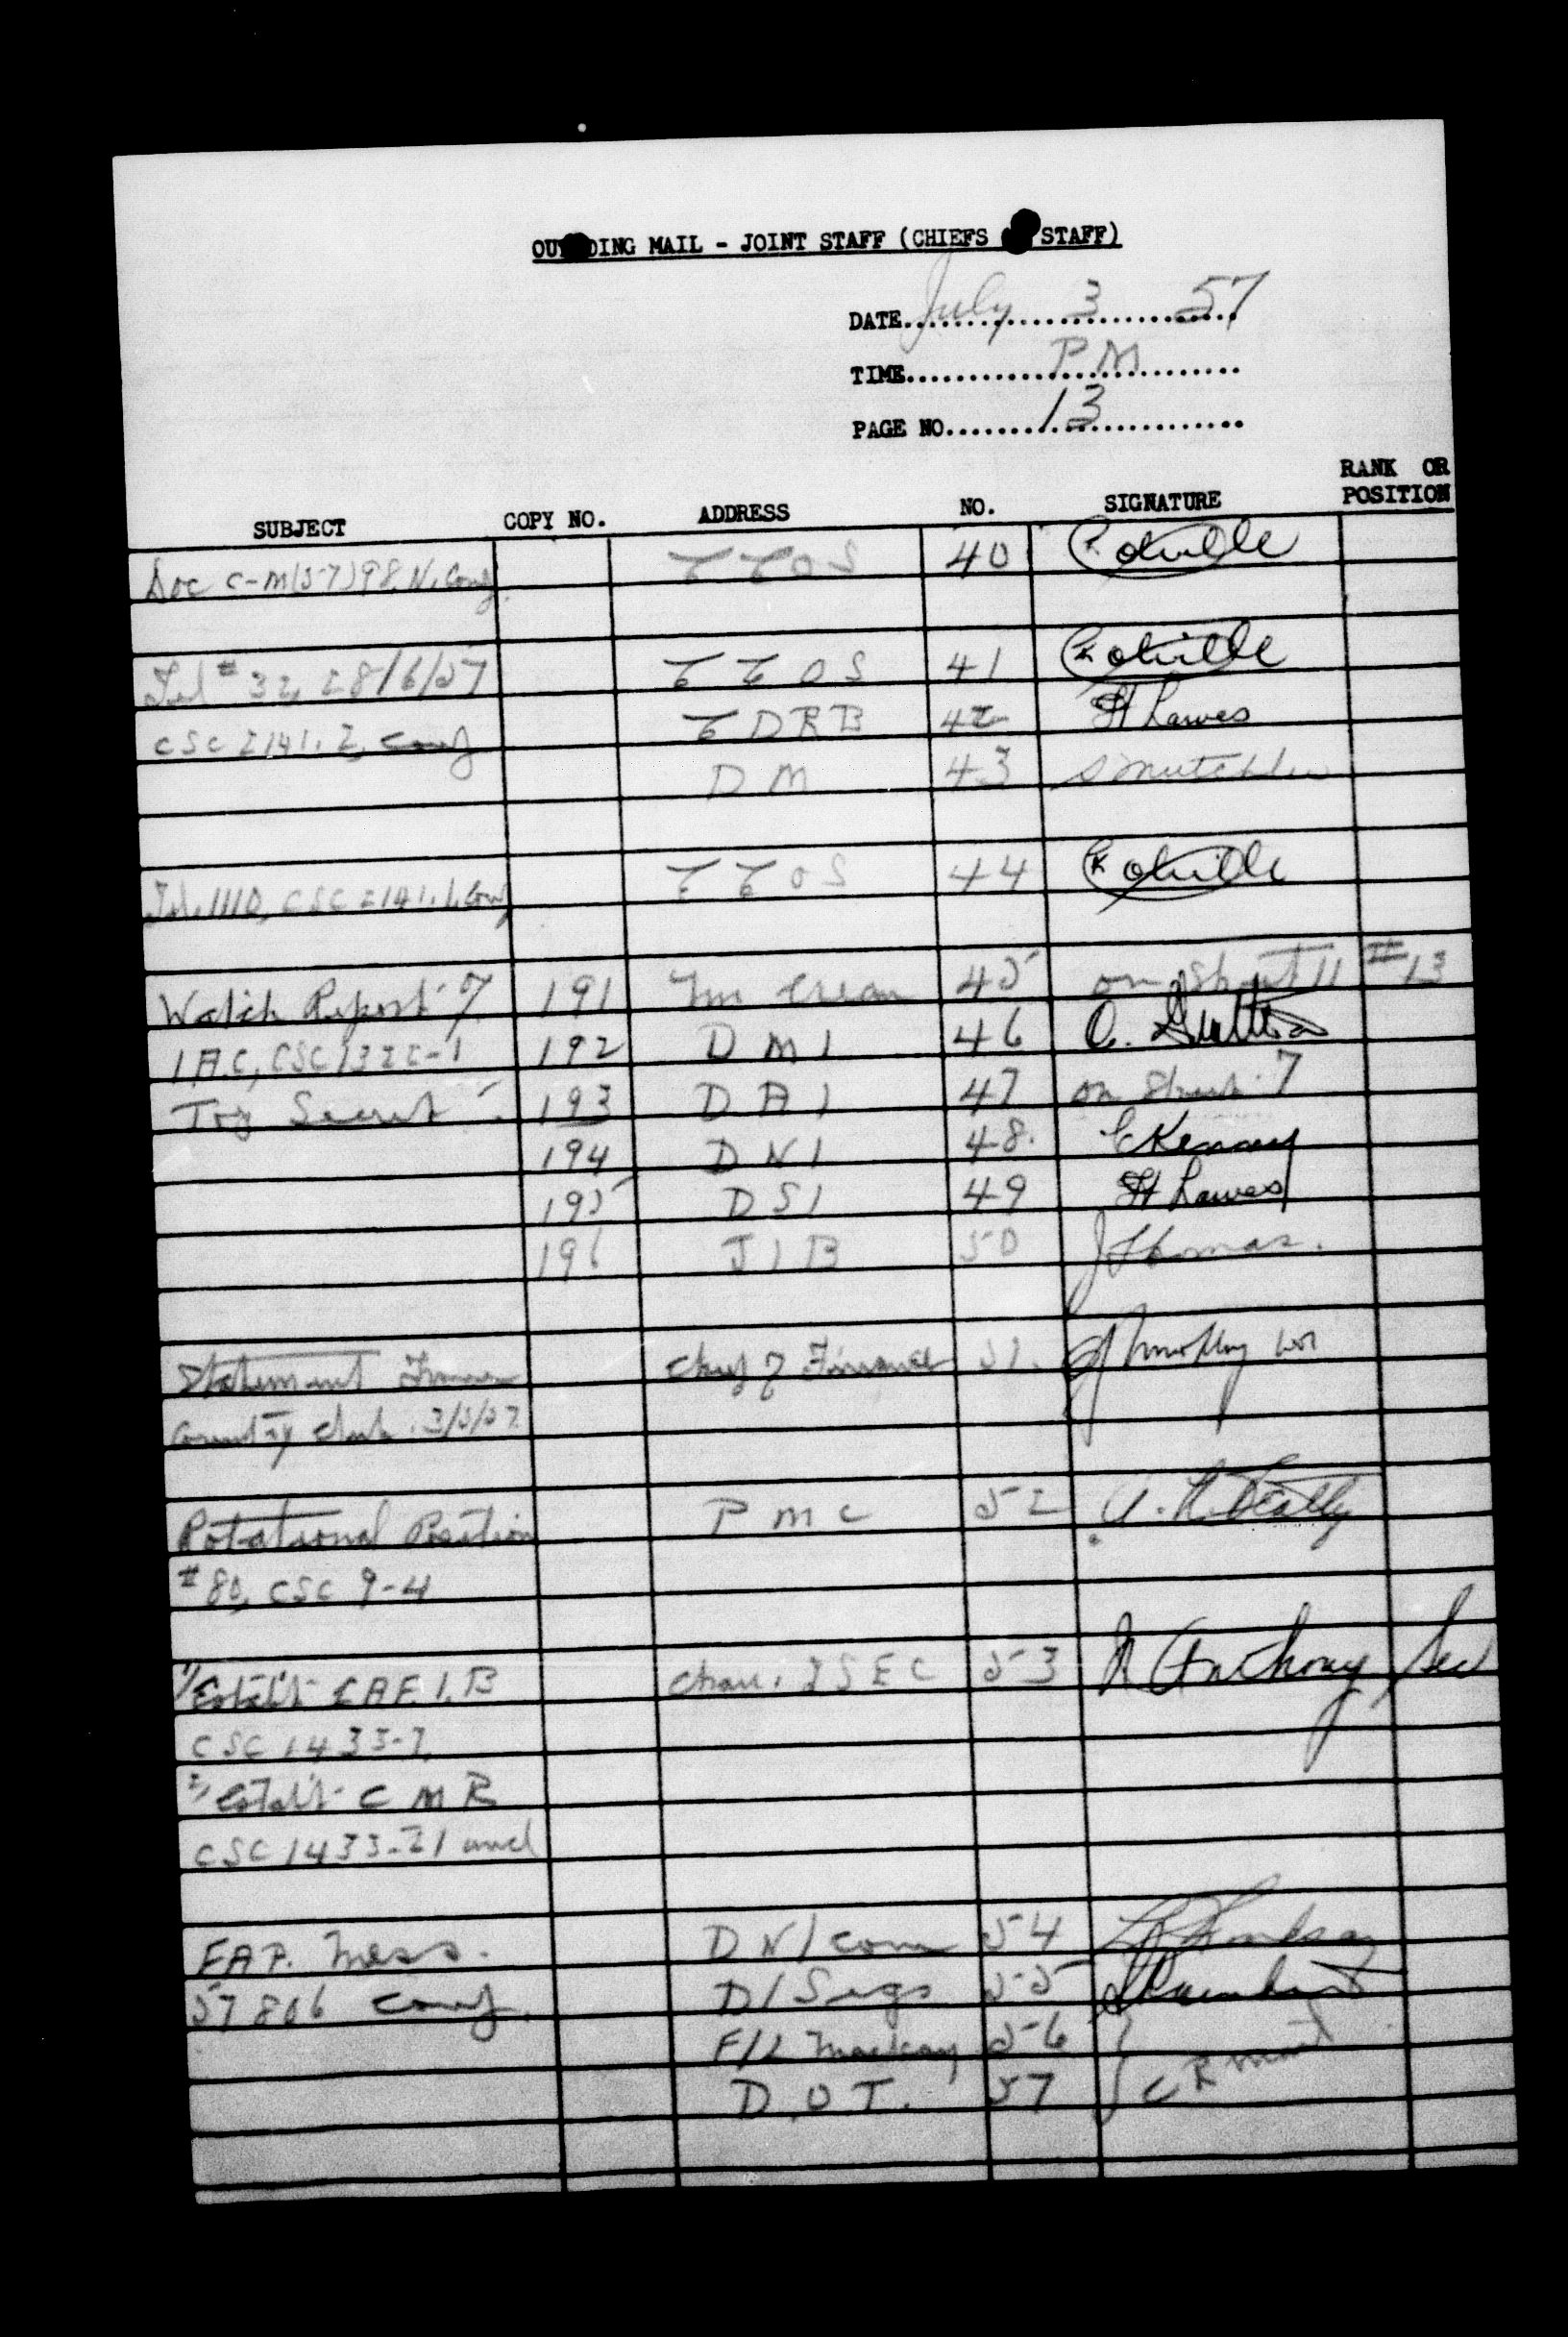 OU DING MAIL - JOINT STAFF (CHIEFS STAFF)
DATE July 3 57
TIME PM
PAGE NO. 13
SUBJECT COPY NO. ADDRESS NO. SIGNATURE RANK OR POSITION
Doc C-M(57)98, N. Conf. CCOS 40
Tel # 32, 28/6/57 CCOS 41
CSC 2141.2, Conf CDRB 42 H Lawes
DM 43
Tel. 1110, CSC 2141.1, Conf CCOS 44
Watch Report 7 191 45 on Sheet 11 #13
I.A.C, CSC 1322-1 192 DMI 46
Top Secret 193 DAI 47 on Sheet 7
194 DNI 48. Kenny
195 DSI 49 H Lawes
196 JIB 50 J Thomas.
Statement Chief of Finance 51.
Country Club. 3/5/57
Rotational Position PMC 52
#80, CSC 9-4
1/ Estab't CAE I.B Chair. ISEC 53 Anthony Sec
CSC 1433-7
2/ Estab't CMR
CSC 1433-21 and
EAP. Mess. DN/Com 54
57806 Conf. D/Sigs 55
F/L Mackay 56
D.O.T. 57